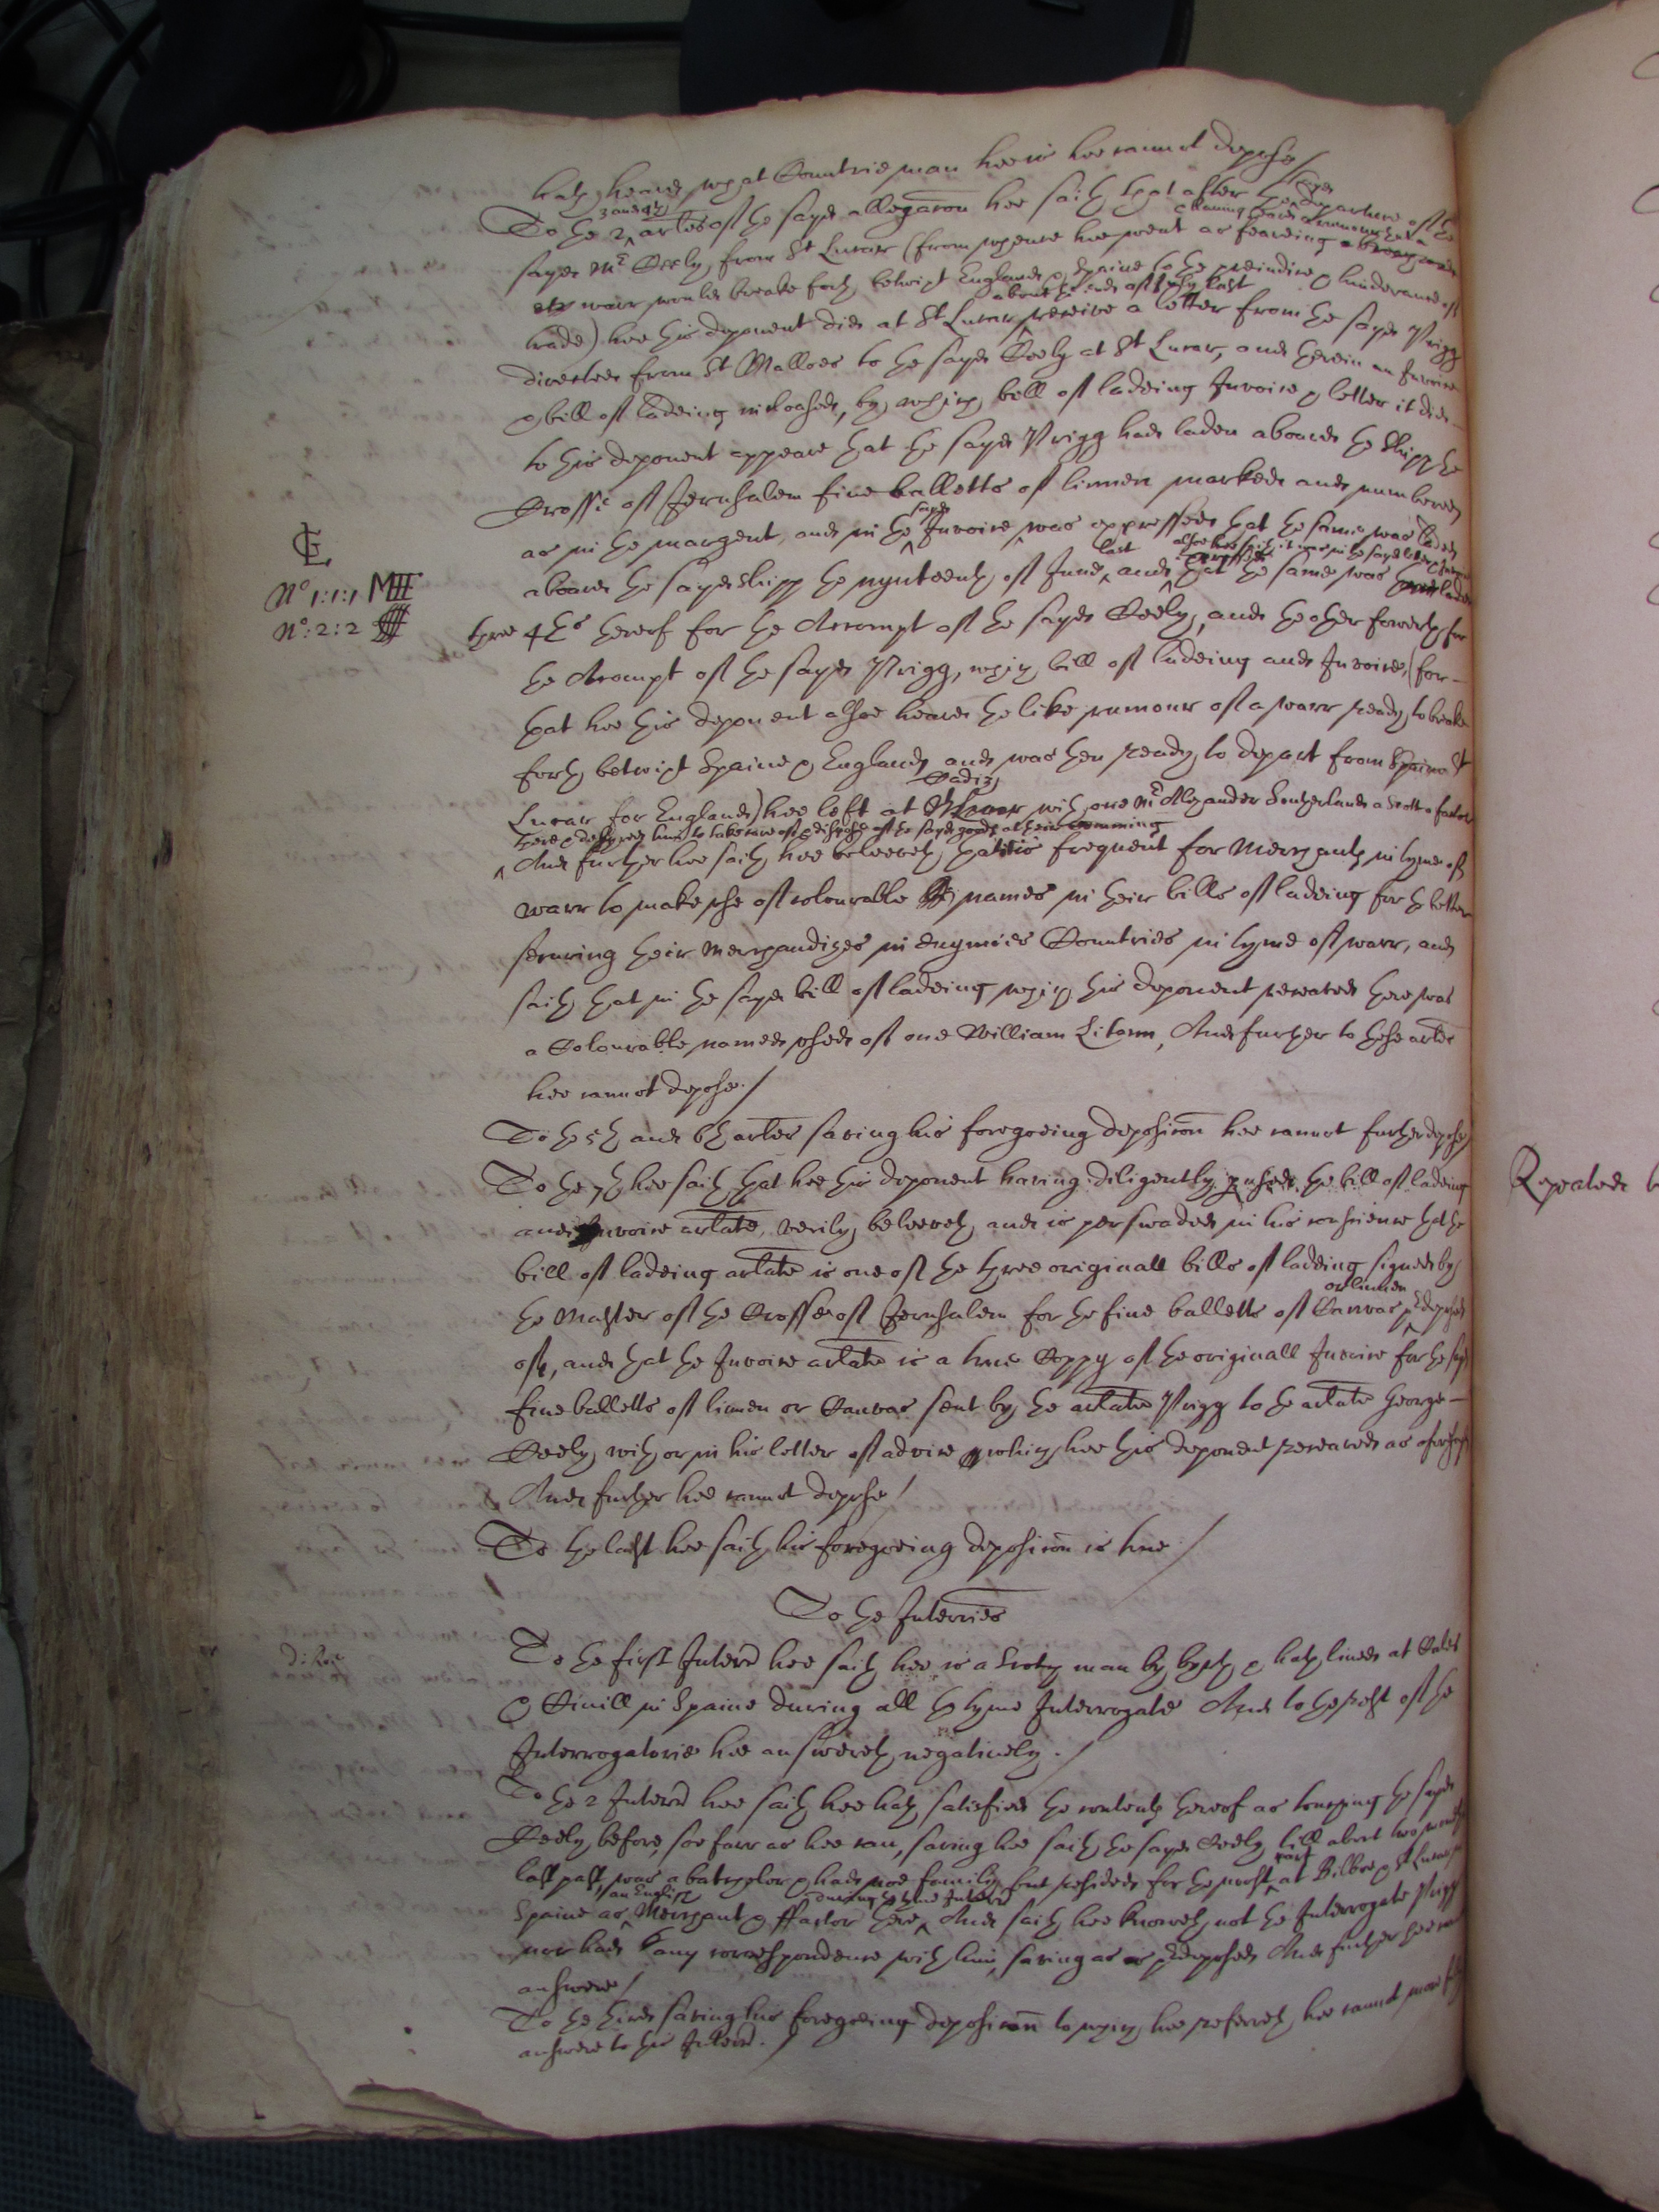 hath heard what Countrie man hee is hee cannot depose /
To the 2 3 and 4th artles of the sayd allegacon hee saith that after the sayd departure of the
sayd Mr Seely from St Lucar (from whence hee went as feareing having heard a rumour that a
warr would breake forth betwixt England & Spaine to the preiudice & hinderance of
trade) hee this deponent did at St Lucar about the end of July last receive a letter from the sayd Prigg
directed from St Malloes to the sayd Seely at St Lucar, and therein an Invoice
& bill of ladeing inclosed, by which bill of ladeing Invoice & letter it did
to this deponent appeare that the sayd Prigg had laden aboard the shipp the
Crosse of Jerusalem five balletts of linnen marked and numbered
as in the margent, and in the sayd Invoice was expressed that the same was laden
CE
aboard the sayd shipp the nynteenth of June last and that the same was laden
No 1:1:1
No: 2:2
three 4ths thereof for the Accompt of the sayd Seely, and the other fowerth for
the Accompt of the sayd Prigg, which bill of ladeing and Invoice, (for
that hee this deponent alsoe heard the like rumour of a warr ready to breake
forth betwixt Spaine & England and was then ready to depart from St
Lucar for England) hee left at Cadiz with one Mr Alexander Sutherland a Scotts factor
there & desyred him to take care of & dispose of the sayd goods at their comming
And further hee saith hee beleeveth that it is frequent for Merchants in tyme of
warr to make use of colourable names in their bills of ladeing for the better
securing their merchandizes in enymies Countries in tyme of warr, and
saith that in the sayd bill of ladeing which this deponent received there was
a Colourable named used of one William Litcom, And further to these artles
hee cannot depose. /
To the 5th and 6th artles saving his foregoeing deposicon hee cannot further depose /
To the 7th hee saith that hee this deponent having diligently perused the bill of ladeing
and Invoice arlate, verily beleeveth and is perswaded in his conscience that the
bill of ladeing arlate is one of the three originall bills of ladeing signed by
the Master of the Crosse of Jerusalem for the five balletts of Canvas or linnen predeposed
of, and that the Invoice arlate is a true Coppy of the originall Invoice for the sayd
five balletts of linnen or Canvas sent by the arlate Prigg to the arlate George
Seely with or in his letter of advice which hee this deponent received as aforesayd
And further hee cannot depose /
To the last hee saith his foregoeing deposicon is true /
To the Interries
To the first Interr hee saith hee is a Scotch man by byrth & hath lived at Cales
& Sivill in Spaine during all the tyme Interrogate And to the rest of the
Interrogatorie hee answereth negatively. /
To the 2 Interr hee saith hee hath satisfied the contents thereof as touching the sayd
Seely before, soe farr as hee can, saving hee saith the sayd Seely till about two
last past, was a batchelor & had noe family but resided for the most part at Bilboe & St Lucar in
Spaine as an English Merchant & ffactor there during the tyme Interr And saith hee knoweth not the Interrogate Prigg
nor had any correspondence with him, saving as is predeposed And further hee cannot
answere /
To the third saving his foregoeing deposicon to which hee referreth hee cannot more fully
answere to this Interr. /
Repeated